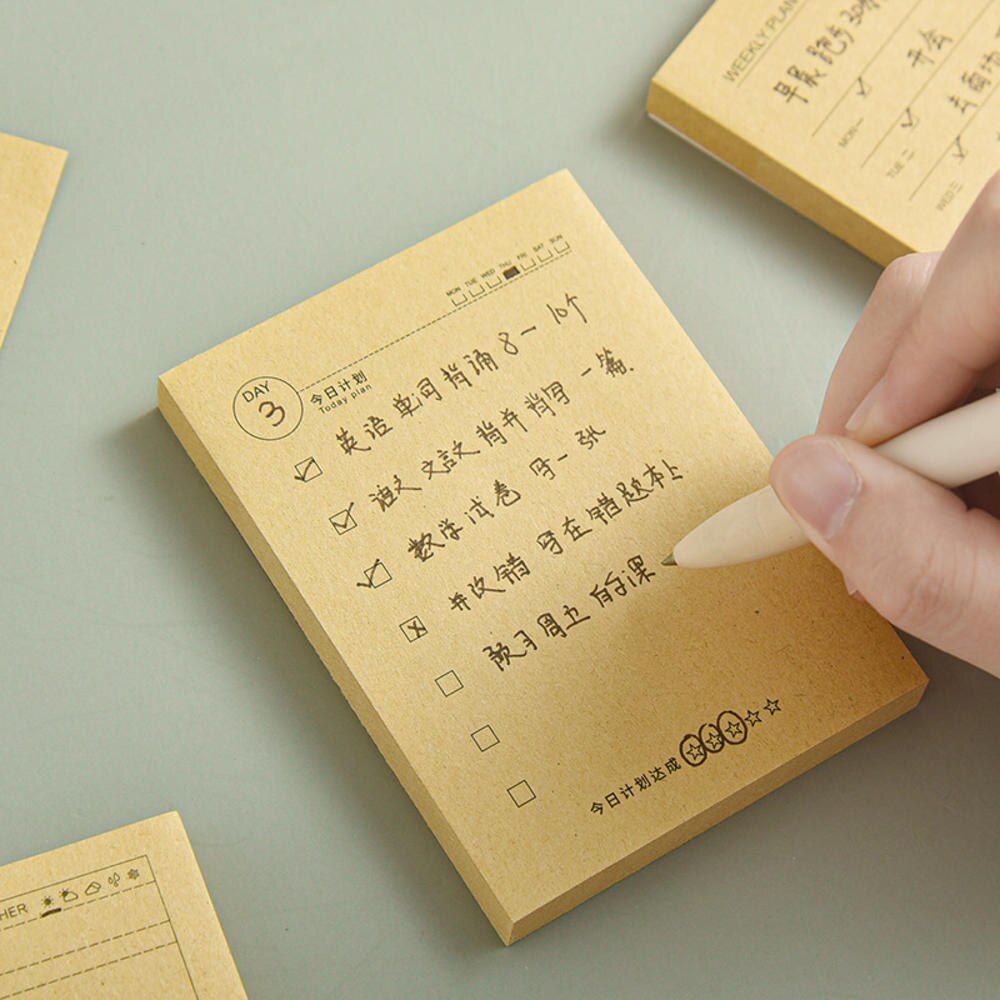 MON TUE WED THU FRI SAT SUN
DAY 3
今日计划
Today plan
英语单词背诵 8一10个
语文文言文背并背写一篇
数学试卷 写一张
并改错 写在错题本上
预习周五的课
今日计划达成
WEEKLY PLAN
早晨跑步30
MON一 开会
TUE二 去
WED三
HER